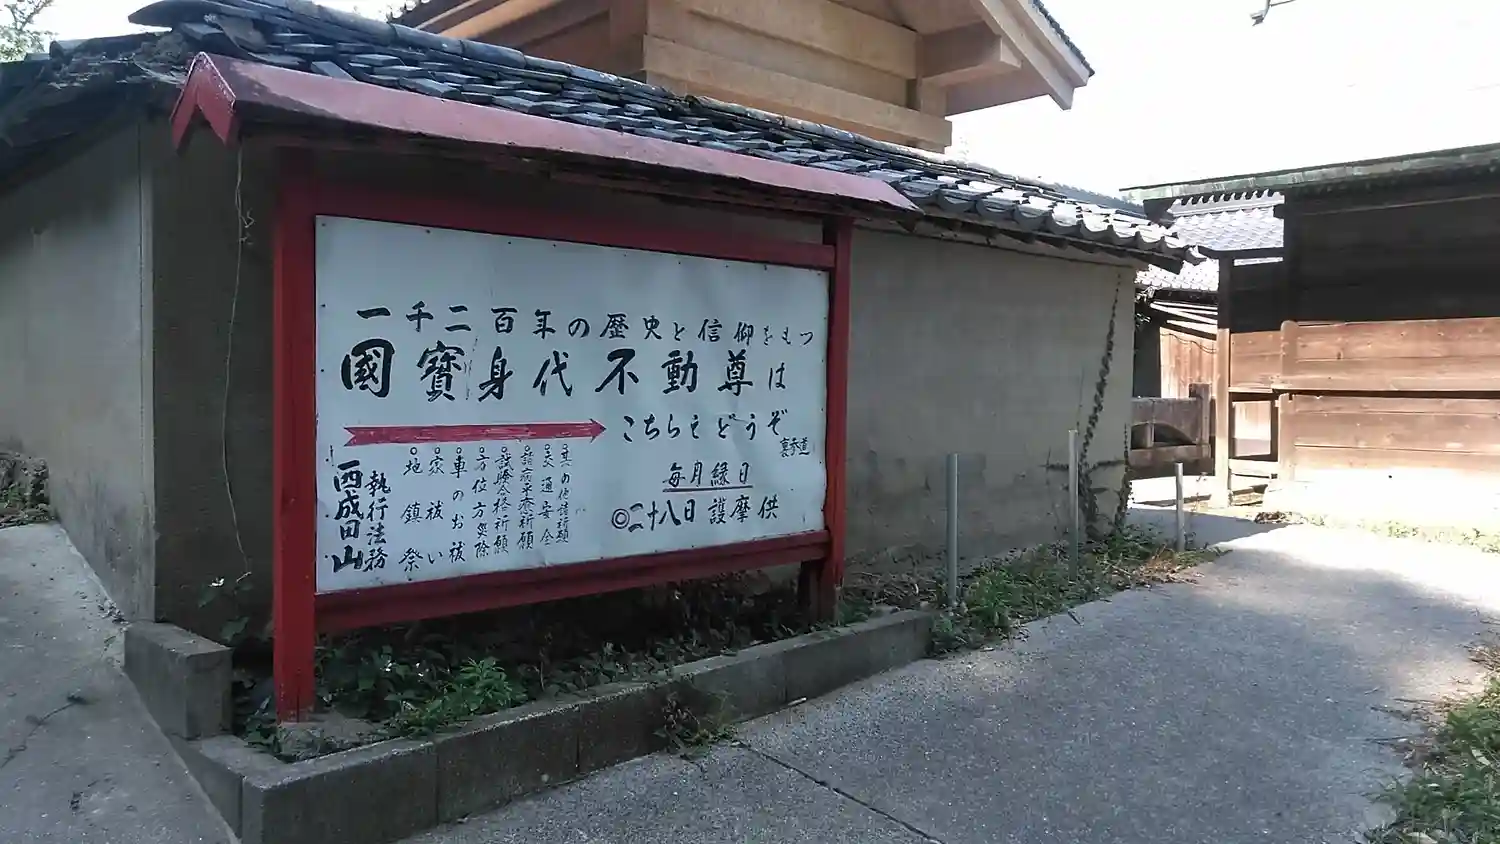 一千二百年の歴史と信仰をもつ
國寶身代不動尊は
こちらえどうぞ
裏参道
毎月縁日
◎二十八日護摩供
○其の他諸祈願
○交通安全
○諸病平癒祈願
○試験合格祈願
○方位方災除
○車のお祓
○家祓い
○地鎮祭
執行法務
西成田山